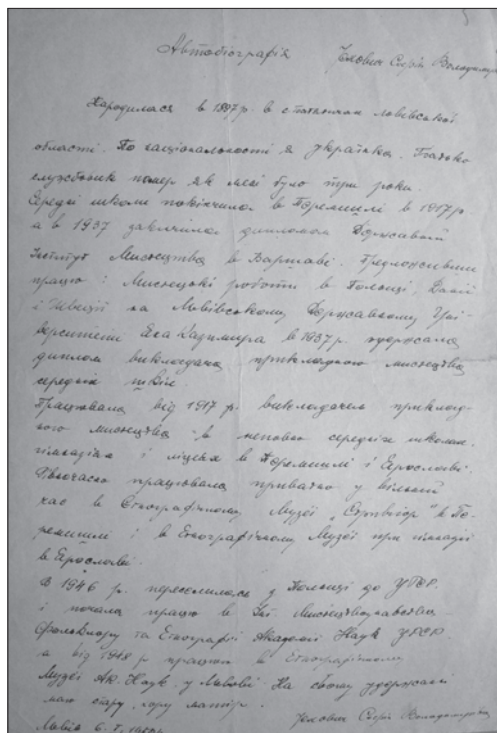 Автобіографія Чехович Софія Володимирівна
Народилася в 1897 р. в Львівської
області. По національності я українка. Батько
службовик помер як мені було три роки.
Середні школи покінчила в Перемишлі в 1917 р
а в 1937 закінчила дипломом Державний
Інститут Мистецтва в Варшаві. Предложивши
працю і Мистецькі роботи в Польщі, Данії
і Швеції на Львівському Державному Уні-
верситеті Яна Казимира в 1937 р. одержала
диплом викладача прикладного мистецтва
середніх шкіл
Працювала від 1917 р. викладачем приклад-
ного мистецтва в неповно середніх школах,
гімназіях і ліцеях в Перемишлі і Ярославі.
Рівночасно працювала приватно у вільний
час в Етнографічному Музеї „Стривігор" в Пе-
ремишлі і в Етнографічному Музеї при гімназії
в Ярославі.
В 1946 р. переселилася з Польщі до УРСР.
і почала працю в Інт. Мистецтвознавства
Фольклору та Етнографії Академії Наук УРСР.
а від 1948 р працюю в Етнографічному
Музеї Ак. Наук. у Львові На свому удержані
маю стару, хору матір.
Львів 6. I. Чехович Софія Володимирівна